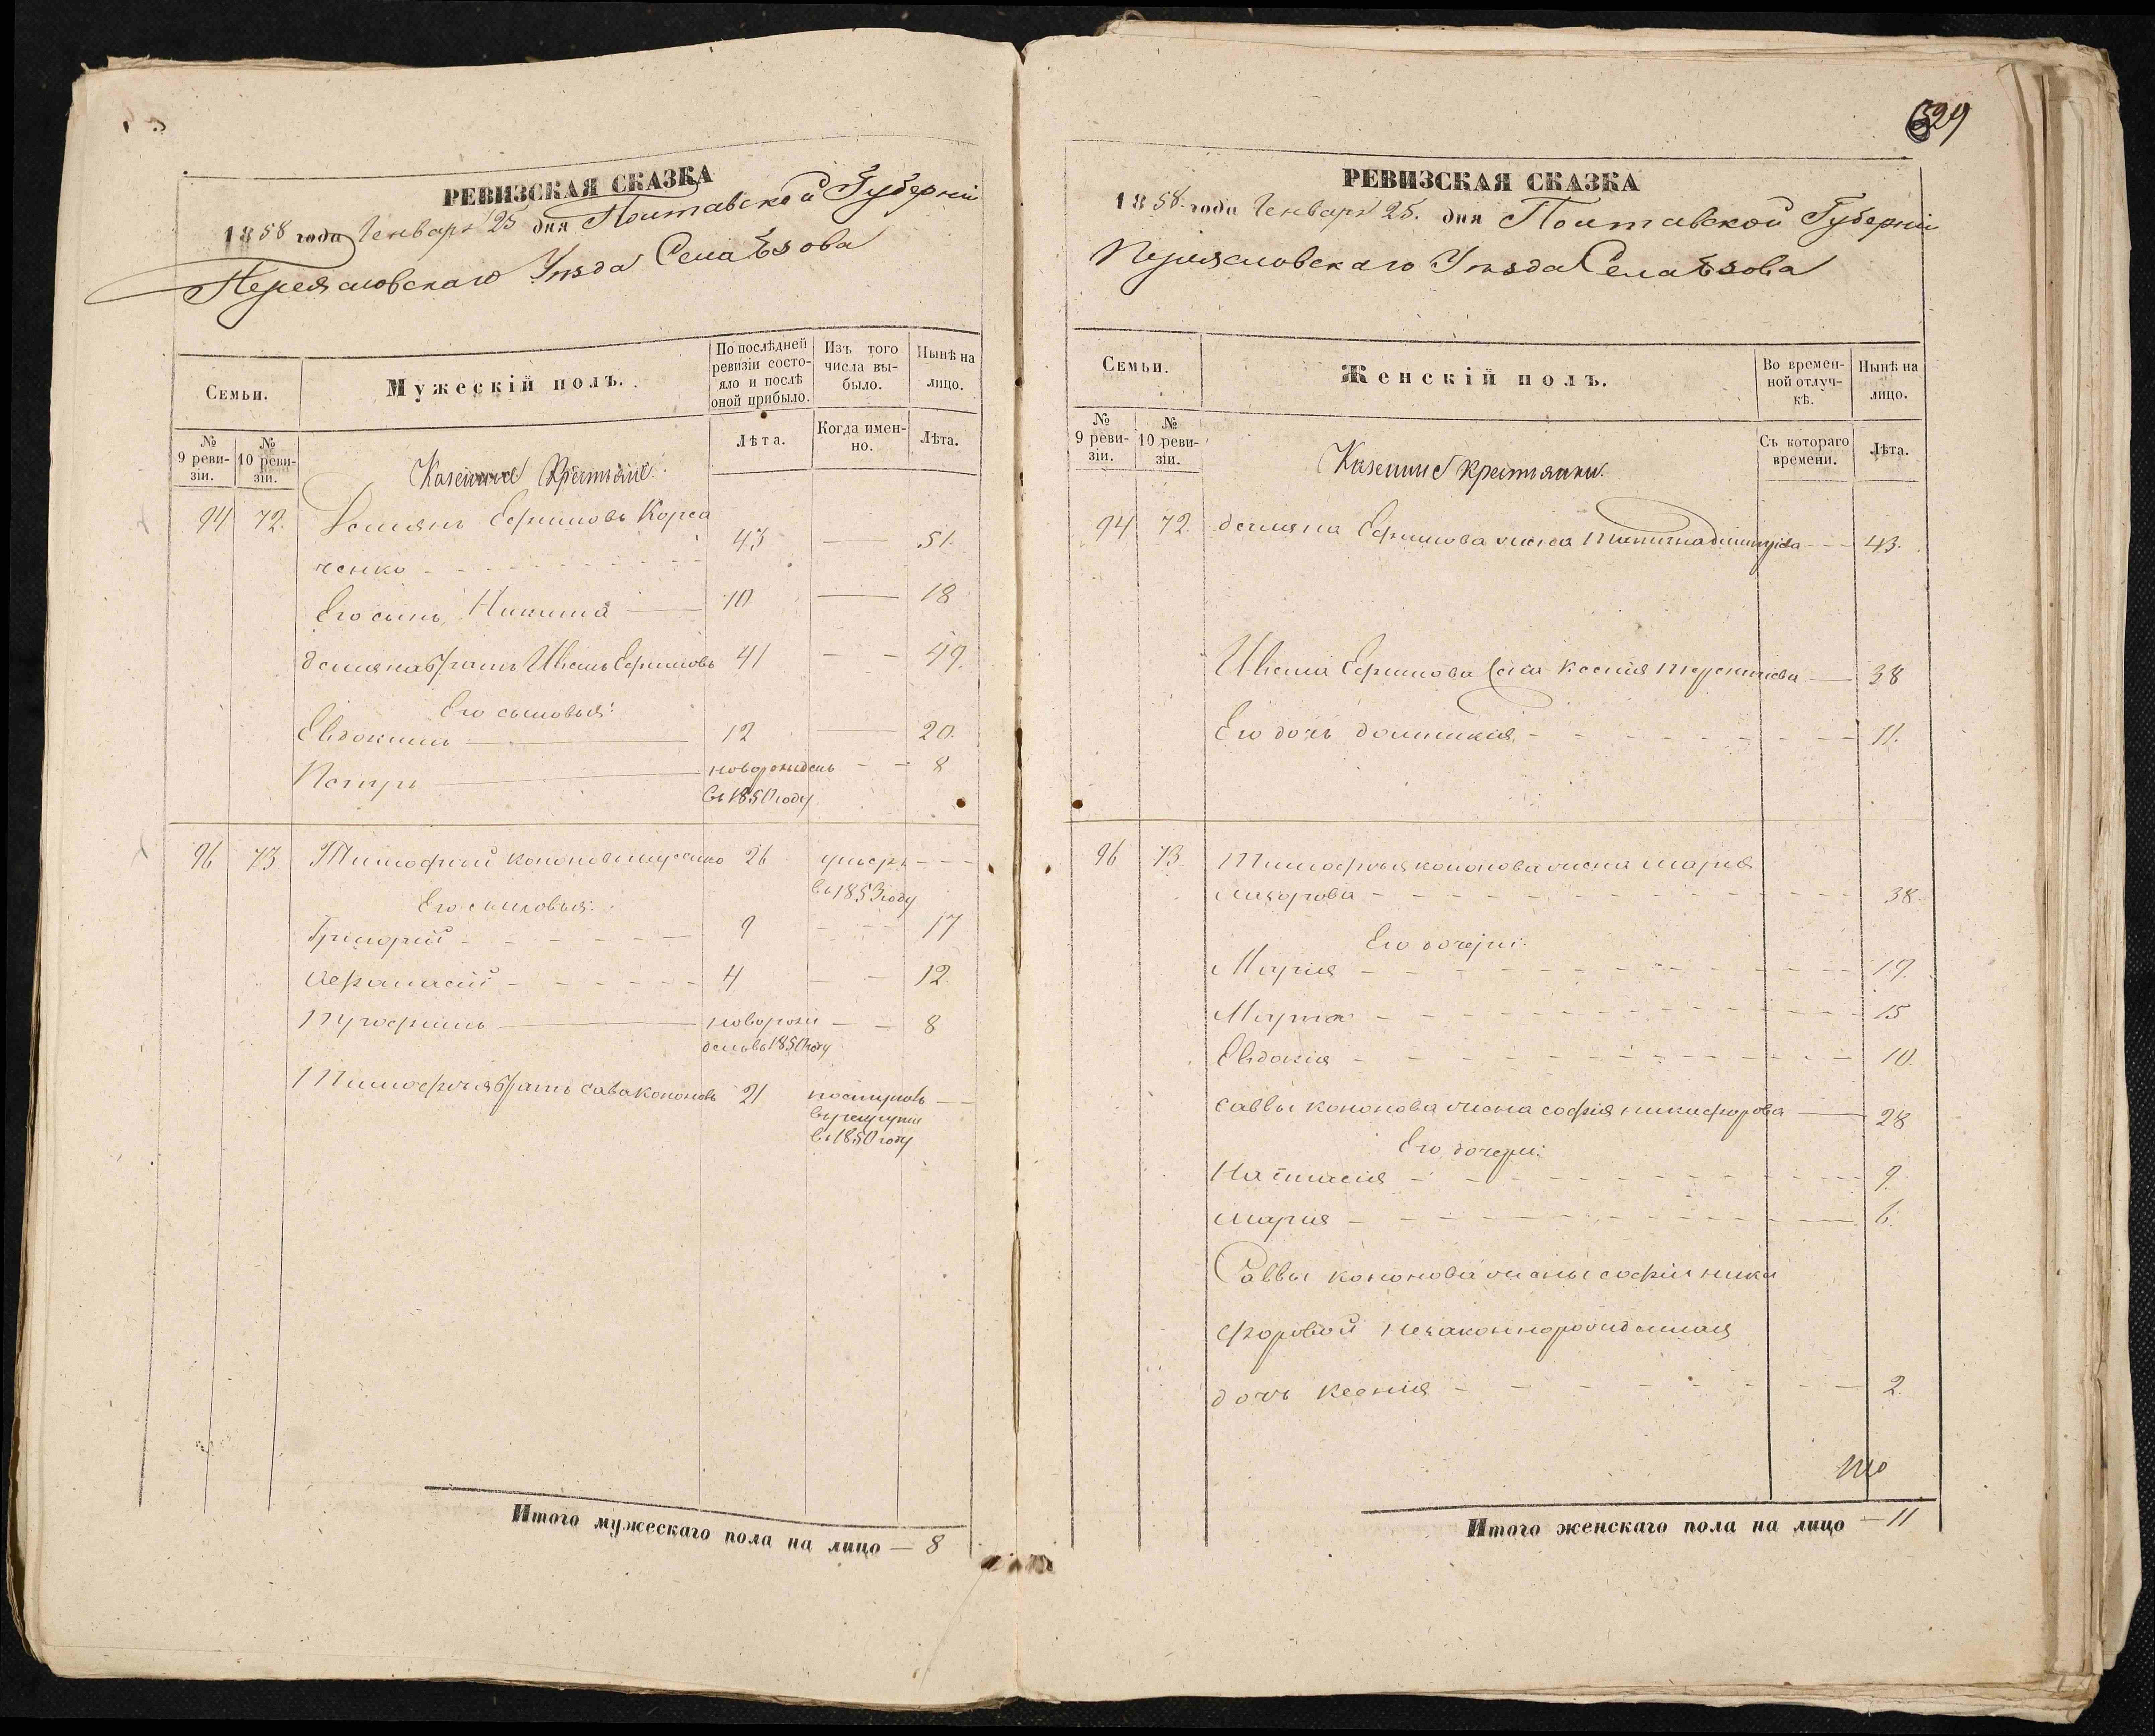 РЕВИЗСКАЯ СКАЗКА
1858 года Генваря 25 дня Полтавской Губерніи
Переясловскаго Уезда Села Ѣзова
Семьи.
Мужескій полъ.
По послѣдней ревизіи состо-
яло и послѣ
оной прибыло.
Изъ того
числа вы-
было.
Нынѣ на
лицо.
№
9 реви-
зіи.
№
10 реви-
зіи.
Лѣта.
Когда имен-
но.
Лѣта.
Казенные Крестьяне.
94 72. Демянъ Ефимовъ Корса
ченко 43 — 51.
Его сынъ Никита — 10 — 18
Демяна братъ Иванъ Ефимовъ 41 — 49.
Его сыновья:
Евдокимъ — 12 — 20.
Петръ — новорожденъ — 8
въ 1850 году
96 73 Тимофей Кононов 26 умеръ
въ 1853 году
Его сыновья:
Григорій 9 17
Афанасій 4 — 12.
Трофимъ — новорож — 8
денъ въ 1850 году
Тимофея братъ Сава Кононовъ 21 поступилъ
въ рекруты
въ 1850 году
Итого мужескаго пола на лицо — 8
329
РЕВИЗСКАЯ СКАЗКА
1858 года Генваря 25. дня Полтавской Губерніи
Переясловскаго Уезда Села Ѣзова
Семьи.
Женскій полъ.
Во времен-
ной отлуч-
кѣ.
Нынѣ на
лицо.
№
9 реви-
зіи.
№
10 реви-
зіи.
Съ котораго
времени.
Лѣта.
Казенные крестьянки.
94 72. Демяна Ефимова жена 43.
Ивана Ефимова жена Ксенія Терентиева — 38
Его дочь Домникія 11.
96 73 Тимофея Кононова жена Марія
38.
Его дочери:
Марія 19.
Марта 15
Евдокія 10.
Саввы Кононова жена Софія Никифорова — 28
Его дочери:
Настасія 9.
Марія 6.
Саввы Кононова жены Софіи Ники
форовой незаконнорожденная
дочь Ксенія 2.
Итого женскаго пола на лицо — 11